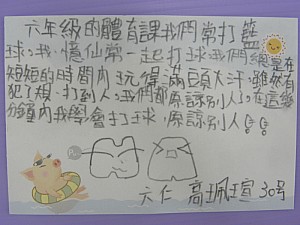 六年級的體育課我們常打籃
球,我憶仙常一起打球我們總是在
短短的時間內玩傎滿頭大汗,雖然有
犯了規,打到人,我們都原諒別人,在這幾
分鐘內我學會打球,原諒別人!!
六仁 高珮瑄 30号